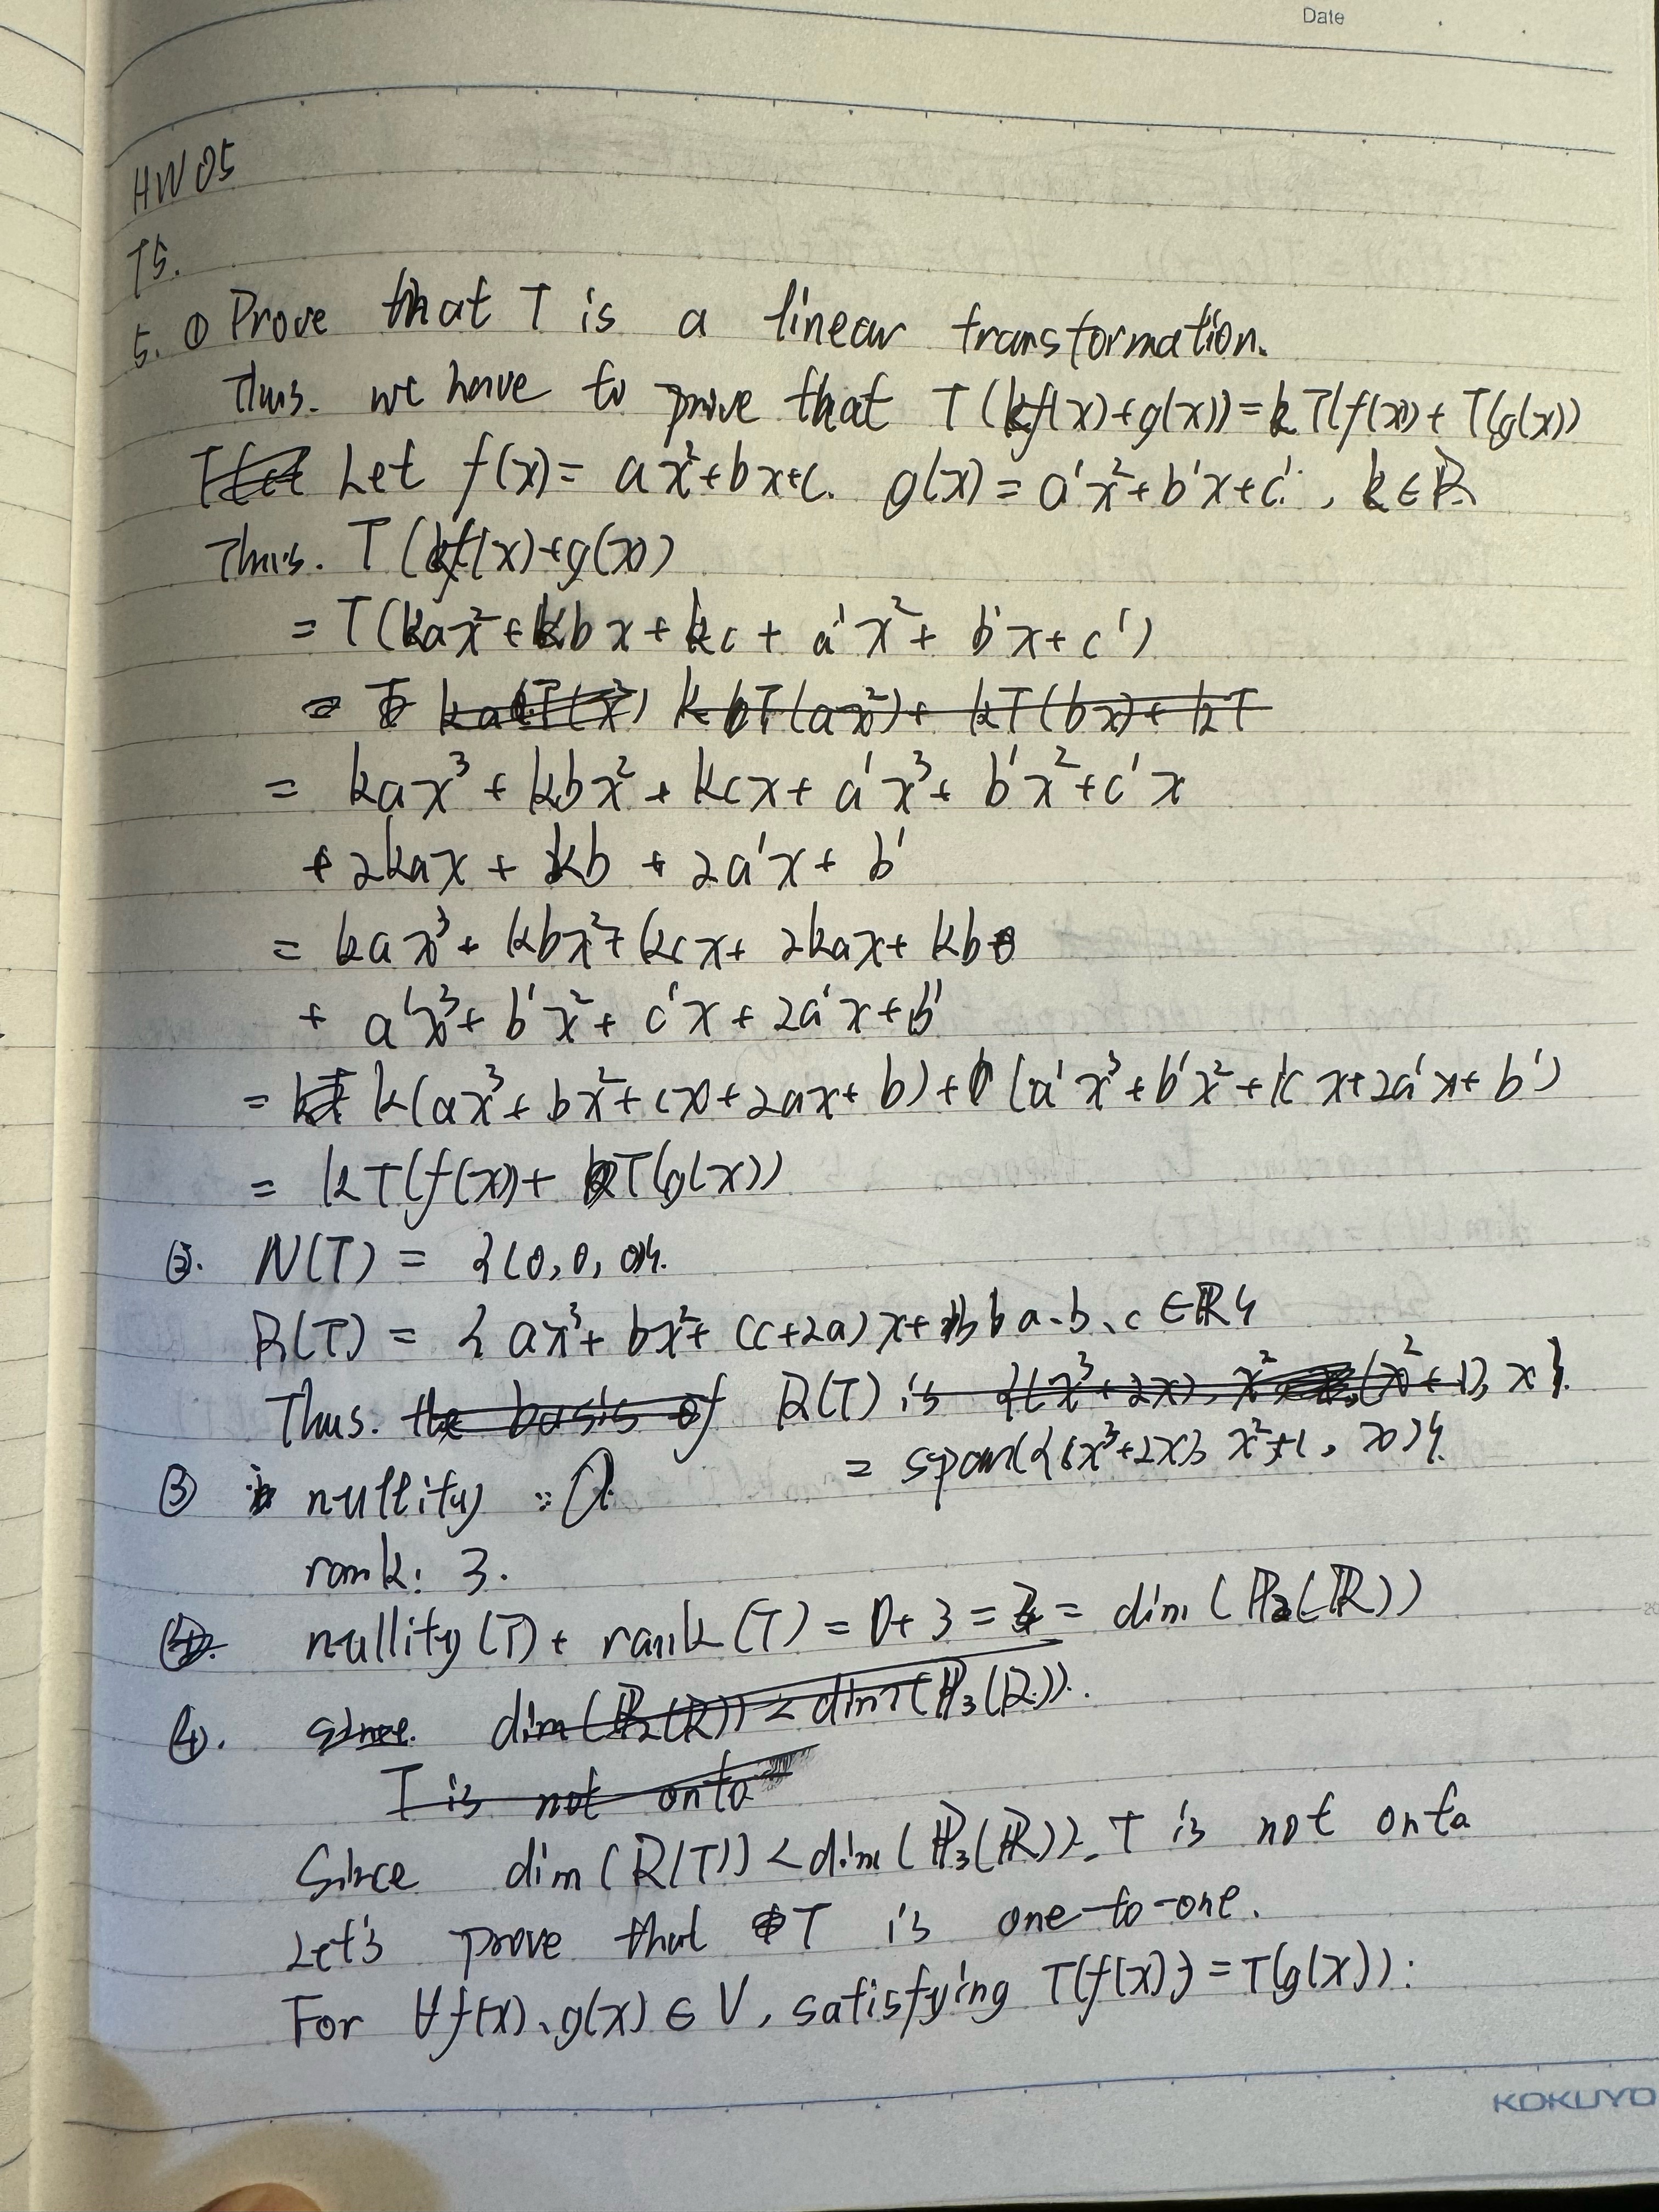 Date
HW05
T5.
5. ① Prove that T is a linear transformation.
Thus. we have to prove that T(kf(x)+g(x))=kT(f(x))+T(g(x))
Let f(x)= ax²+bx+c. g(x)=a'x²+b'x+c', k∈ℝ
Thus. T(kf(x)+g(x))
= T(kax²+kbx+kc+a'x²+b'x+c')
= kax³+kbx²+kcx+a'x³+b'x²+c'x
+2kax+kb+2a'x+b'
= kax³+kbx²+kcx+2kax+kb
+ a'x³+b'x²+c'x+2a'x+b'
= k(ax³+bx²+cx+2ax+b)+(a'x³+b'x²+c x+2a'x+b')
= kT(f(x))+T(g(x))
②. N(T) = {(0,0,0)}.
R(T) = {ax³+bx²+(c+2a)x+b a、b、c∈ℝ}
Thus. the basis of R(T) is {(x³+2x), x² (x²+1), x}.
= span({(x³+2x), x²+1, x)}.
③ nullity : 0.
rank: 3.
nullity(T)+rank(T)=0+3=3=dim(P₂(ℝ))
④. since. dim(P₂(ℝ))<dim(P₃(ℝ)).
T is not onto
Since dim(R(T))<dim(P₃(ℝ)). T is not onto
Let's prove that T is one-to-one.
For ∀f(x)、g(x)∈V, satisfying T(f(x))=T(g(x)):
KOKUYO